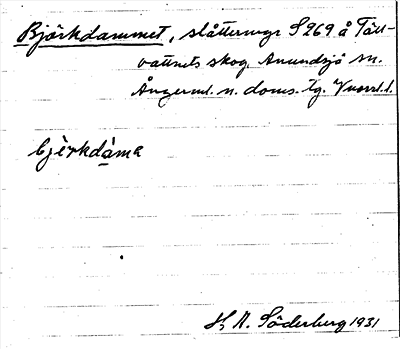 Björkdammet, slåttermyr S 269 å Täll-
vattnets skog, Anundsjö sn.
Ångerml. n. doms. tg. Vnorrl. l.
bjèrkdàma
H. N. Söderberg 1931